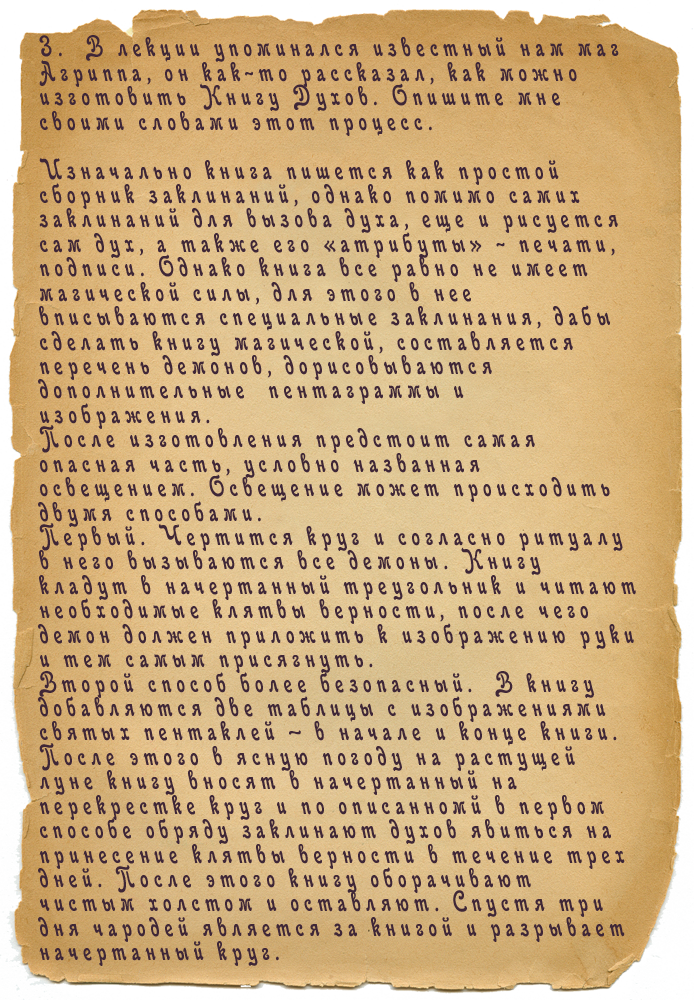 3. В лекции упоминался известный нам маг
Агриппа, он как-то рассказал, как можно
изготовить Книгу Духов. Опишите мне
своими словами этот процесс.
Изначально книга пишется как простой
сборник заклинаний, однако помимо самих
заклинаний для вызова духа, еще и рисуется
сам дух, а также его «атрибуты» - печати,
подписи. Однако книга все равно не имеет
магической силы, для этого в нее
вписываются специальные заклинания, дабы
сделать книгу магической, составляется
перечень демонов, дорисовываются
дополнительные пентаграммы и
изображения.
После изготовления предстоит самая
опасная часть, условно названная
освещением. Освещение может происходить
двумя способами.
Первый. Чертится круг и согласно ритуалу
в него вызываются все демоны. Книгу
кладут в начертанный треугольник и читают
необходимые клятвы верности, после чего
демон должен приложить к изображению руки
и тем самым присягнуть.
Второй способ более безопасный. В книгу
добавляются две таблицы с изображениями
святых пентаклей - в начале и конце книги.
После этого в ясную погоду на растущей
луне книгу вносят в начертанный на
перекрестке круг и по описанномй в первом
способе обряду заклинают духов явиться на
принесение клятвы верности в течение трех
дней. После этого книгу оборачивают
чистым холстом и оставляют. Спустя три
дня чародей является за книгой и разрывает
начертанный круг.